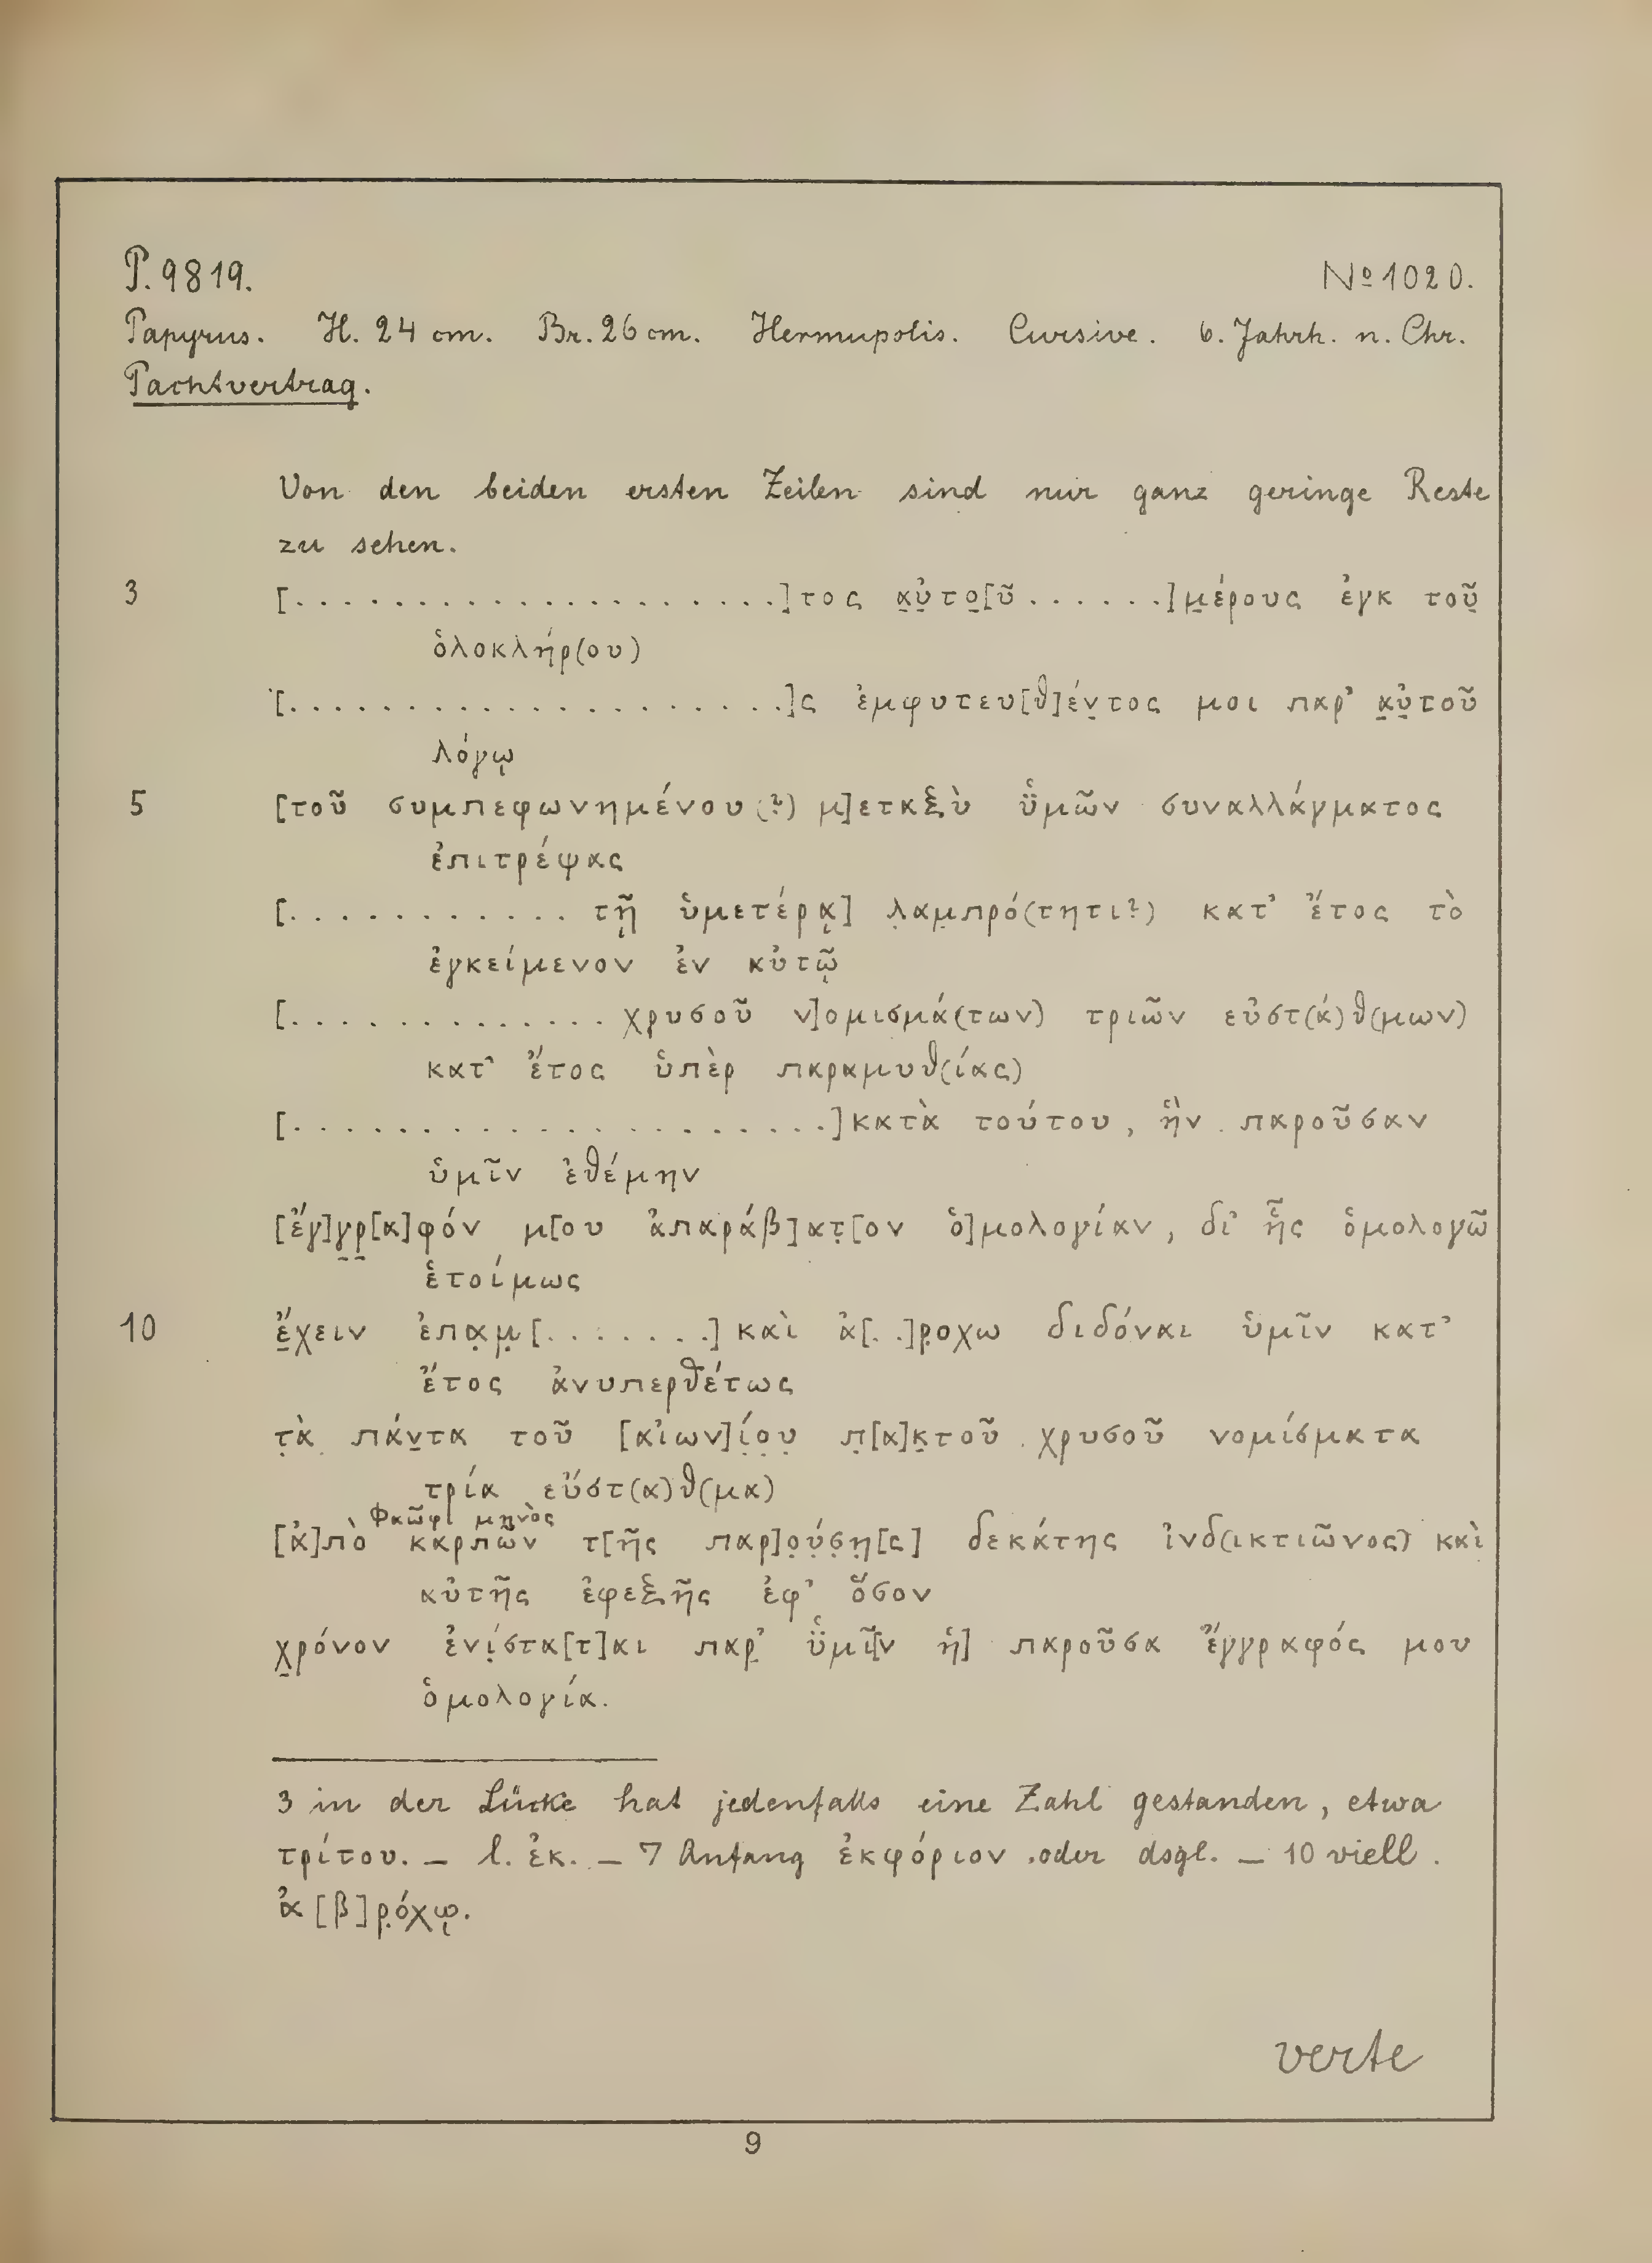 P. 9819. № 1020.
Papyrus. H. 24 cm. Br. 26 cm. Hermupolis. Cursive. 6. Jahrh. n. Chr.
Pachtvertrag.
Von den beiden ersten Zeilen sind nur ganz geringe Reste
zu sehen.
3 [. . . . . . . . . . . . . . . . . . . .]τος α̣ὐ̣το̣[ῦ . . . . . .]μ̣έρους ἐγκ τοῦ̣
ὁλοκλήρ(ου)
[. . . . . . . . . . . . . . . . . . . .]ς ἐμφυτευ[θ]έν̣τος μοι παρ' α̣ὐ̣τοῦ
λόγῳ
5 [τοῦ συμπεφωνημένου(?) μ]εταξὺ ὑ̈μῶν συναλλάγματος
ἐπιτρέψας
[. . . . . . . . . . . τῇ ὑμετέρᾳ] λ̣αμ̣πρό(τητι?) κατ' ἔτος τὸ
ἐγκείμενον ἐν αὐτῷ
[. . . . . . . . . . . . . χρυσοῦ ν]ομισμά(των) τριῶν εὐστ(ά)θ(μων)
κατ' ἔτος ὑπὲρ παραμυθ(ίας)
[. . . . . . . . . . . . . . . . . . . . .]κατὰ τούτου, ἣν παροῦσαν
ὑμῖν ἐθέμην
[ἔγ]γ̣ρ̣[α]φόν μ[ου ἀπαράβ]ατ̣[ον ὁ]μολογίαν, δι' ἧς ὁμολογῶ
ἑτοίμως
10 ἔ̣χειν ἐπα̣μ̣[. . . . . . .] καὶ ἀ[. .]ρ̣οχω διδόναι ὑμῖν κατ'
ἔτος ἀνυπερθέτως
τ̣ὰ πάν̣τα τοῦ [αἰων]ί̣ο̣υ̣ π̣[α]κ̣τοῦ χρυσοῦ νομίσματα
τρία εὔστ(α)θ(μα)
Φαῶφι μηνὸς
[ἀ]πὸ καρπῶν τ[ῆς παρ]ο̣ύ̣σ̣η̣[ς] δεκάτης ἰνδ(ικτιῶνος) καὶ
αὐτῆς ἐφεξῆς ἐφ' ὅσον
χ̣ρόνον ἐνί̣στα[τ]αι παρ̣' ὑ̈μῖ[ν ἡ] παροῦσα ἔγγραφός μου
ὁμολογία.
3 in der Lücke hat jedenfalls eine Zahl gestanden, etwa
τρίτου. — l. ἐκ. — 7 Anfang ἐκφόριον oder dsgl. — 10 viell.
ἀ[β]ρ̣όχῳ.
verte
9